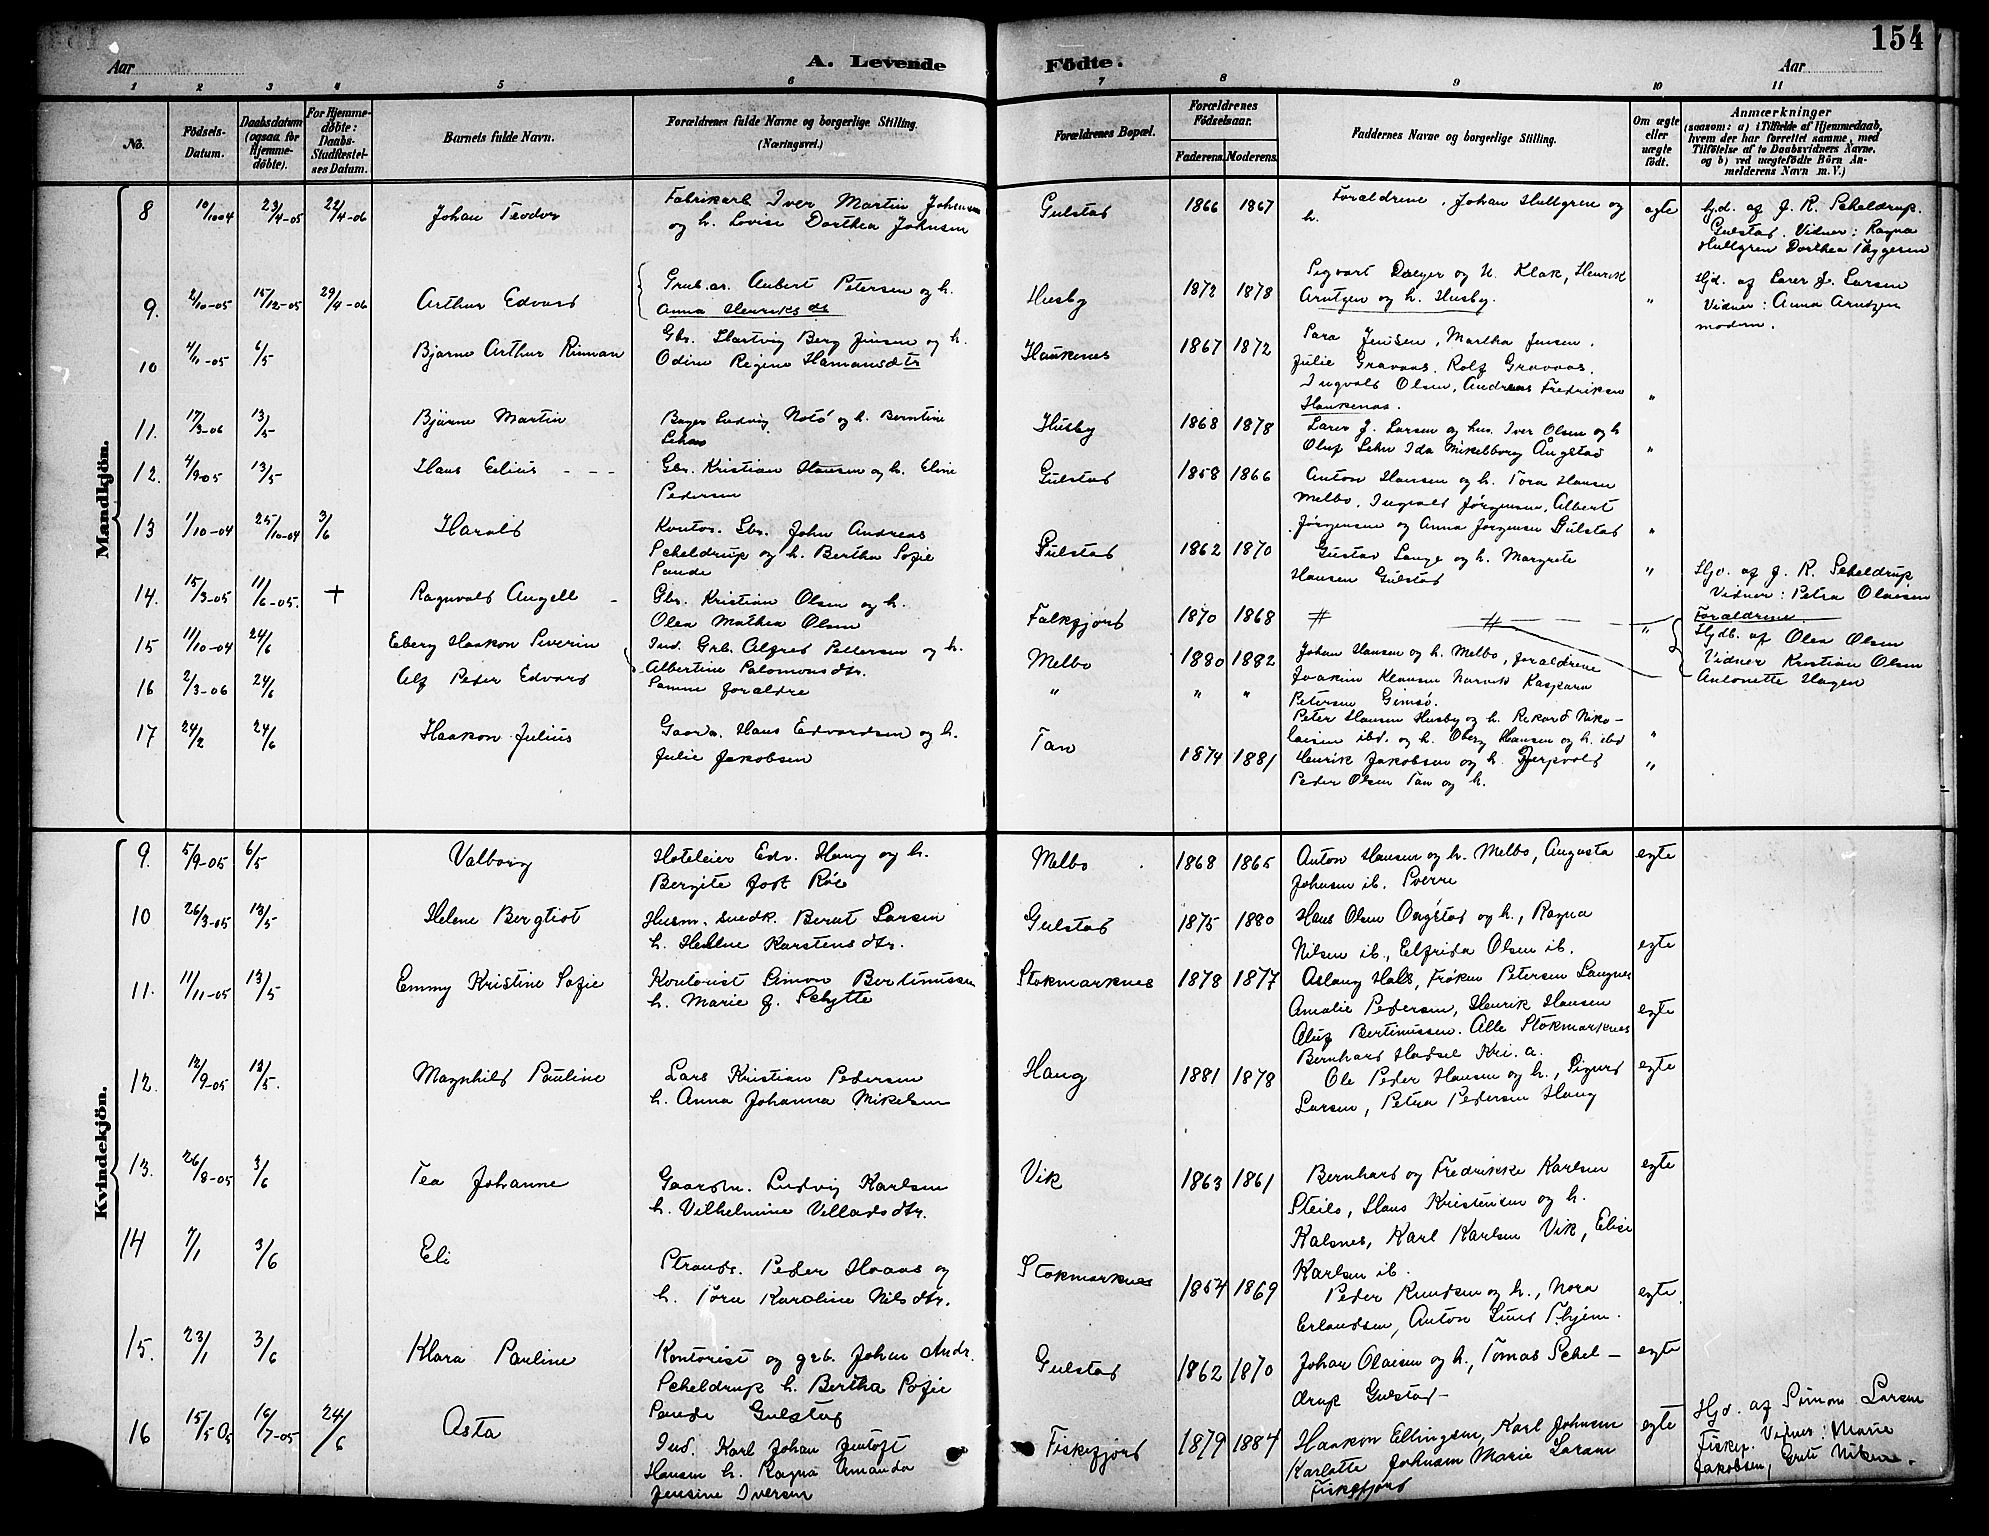 154
Aar
A. Levende Födte.
Aar
1 2 3 4 5 6 7 8 9 10 11
No.
Födsels-Datum.
Daabsdatum (ogsaa for Hjemmedöbte).
For Hjemmedöbte: Daabs-Stadfæstelses Datum.
Barnets fulde Navn.
Forældrenes fulde Navne og borgerlige Stilling. (Næringsvei.)
Forældrenes Bopæl.
Forældrenes Födselsaar.
Faderens. Moderens.
Faddernes Navne og borgerlige Stilling.
Om ægte eller uægte födt.
Anmærkninger
(saasom: a) i Tilfælde af Hjemmedaab, hvem der har forrettet samme, med Tilföielse af to Daabsvidners Navne, og b) ved uægtefödte Börn Anmelderens Navn m. V.)
Mandkjön.
8 10/10 04 23/4-05 22/4-06 Johan Teodor
Fabrikarb Iver Martin Johnsen
og h. Lovise Dorthea Johnsen
Gulstad 1866 1867
Forældrene, Johan Hultgren og
h.
egte
Hjd. af J. R. Scheldrup.
Gulstad. Vidner: Ragna
Hultgren Dorthea Thygesen
9. 2/10-05 15/12-05 29/4-06 Arthur Edvard
Grub.ar. Aubert Petersen og h.
Anna Henriksdtr
Husby 1872 1878
Sigvart Dreyer og N. Klak, Henrik
Arntzen og h. Husby.
"
Hjd. af Lærer J. Larsen
Vidner: Anna Arntzen
modern.
10 4/11-05 6/5 Bjarne Arthur Rinnan
Gbr. Hartvig Berg Jensen og h.
Odine Regine Hamansdtr
Haukenes 1867 1872
Sara Jensen, Martha Jensen.
Julie Gravaas. Rolf Gravaas.
Ingvald Olsen, Andreas Fredriksen
Haukenes.
"
11. 17/3-06 13/5 Bjarne Martin
Bager Ludvig Notø og h. Berntine
Lehn
Husby 1868 1878
Lærer J. Larsen og hus. Iver Olsen og h
Oluf Lehn Ida Mikelborg Ångstad
"
12. 4/9 05 13/5 Hans Edius - - -
Gbr. Kristian Hansen og h. Eline
Pedersen
Gulstad 1858 1866
Anton Hansen og h. Tora Hansen
Melbo, Ingvald Jørgensen, Albert
Jørgensen og Anna Jørgensen Gulstad
"
13 1/10-04 25/10-04 3/6 Harald
Kontor. Gbr. John Andreas
Scheldrup og h. Bertha Sofie
Sande
Gulstad 1862 1870
Gustav Lange og h. Margrete
Hansen Gulstad
"
Hjd. af J. R. Scheldrup
Vidner: Petra Olaisen
14. 15/3-05 11/6-05. + Ragnvald Angell -
Gbr. Kristian Olsen og h.
Olea Mathea Olsen
Falkfjord 1870 1868
# #
"
Forældrene
Hjdb. af Olea Olsen
Vidner Kristian Olsen
Antonette Hagen
15 11/10-04 24/6 Eberg Haakon Severin
Ind. Grb. Alfred Pettersen og h.
Albertine Salomonsdtr.
Melbo 1880 1882
Johan Hansen og h. Melbo, forældrene
Joakim Klausen Narvik Kaspara
16 2/3-06 24/6 Alf Peder Edvard
Samme forældre
" " "
Petersen Gimsø.
Peter Hansen Husby og h. Rikard Niko-
laisen ibd. og h. Oberg Hansen og h. ibd
"
17 24/2 24/6 Haakon Julius
Gaard. Hans Edvardsen og h.
Julie Jakobsen
Tan 1874 1881
Henrik Jakobsen og h.
Peder Olsen Tan og h.
"
Kvindekjön.
9. 5/9-05 6/5 Valborg
Hoteleier Edv. Haug og h.
Bergite født Röe
Melbo 1868 1865
Anton Hansen og h. Melbo, Augusta
Johnsen ib. Sverre
egte
10 26/3-05 13/5 Helene Bergliot
Husm. snedk. Bernt Larsen
h. Helene Karstensdtr.
Gulstad 1875 1880
Hans Olsen Ongstad og h., Ragna
Nilsen ib., Elfrida Olsen ib.
egte
11. 11/11-05 13/5 Emmy Kristine Sofie
Kontorist Simon Bertinussen
h. Marie f. Schytte
Stokmarknes 1878 1877
Aslaug Hals, Frøken Petersen Langnes
Amalie Pedersen, Henrik Hansen
Oluf Bertinussen. Alle Stokmarknes
Bernhard Hadsel Kri.a.
egte
12. 12/9-05 13/5. Magnhild Pauline
Lars Kristian Pedersen
h. Anna Johanna Mikelsen
Haug 1881 1878
Ole Peder Hansen og h., Sigurd
Larsen, Petra Pedersen Haug
egte
13. 26/8-05 3/6 Tea Johanne
Gaardm. Ludvig Karlsen
h. Vilhelmine Velladsdtr.
Vik 1863 1861
Bernhard og Fredrikke Karlsen
Steilo, Hans Kristensen og h.
Kalsnes, Karl Karlsen Vik, Elise
Karlsen ib.
egte
14 7/1 3/6 Eli
Strands. Peder Hvaas og
h. Tora Karoline Nilsdtr.
Stokmarknes 1864 1869
Peder Knudsen og h., Nora
Erlandsen, Anton Lund Thjem.
egte
15. 23/1 3/6 Klara Pauline
Kontorist og grb. Johan Andr.
Scheldrup h. Bertha Sofie
Sande Gulstad
Gulstad 1862 1870
Johan Olaisen og h., Tomas Schel-
drup Gulstad-
egte
16 15/5 05 16/7-05 24/6 Asta
Ind. Karl Johan Jentoft
Hansen h. Ragna Amanda
Jensine Iversen
Fiskefjord 1879 1884
Haakon Ellingsen, Karl Johnsen
Karlotte Johnsen Marie Larsen
Fiskefjord
egte
Hjd. af Simon Larsen
Fiskef. Vidner: Marie
Jakobsen, Erik Nilsen.